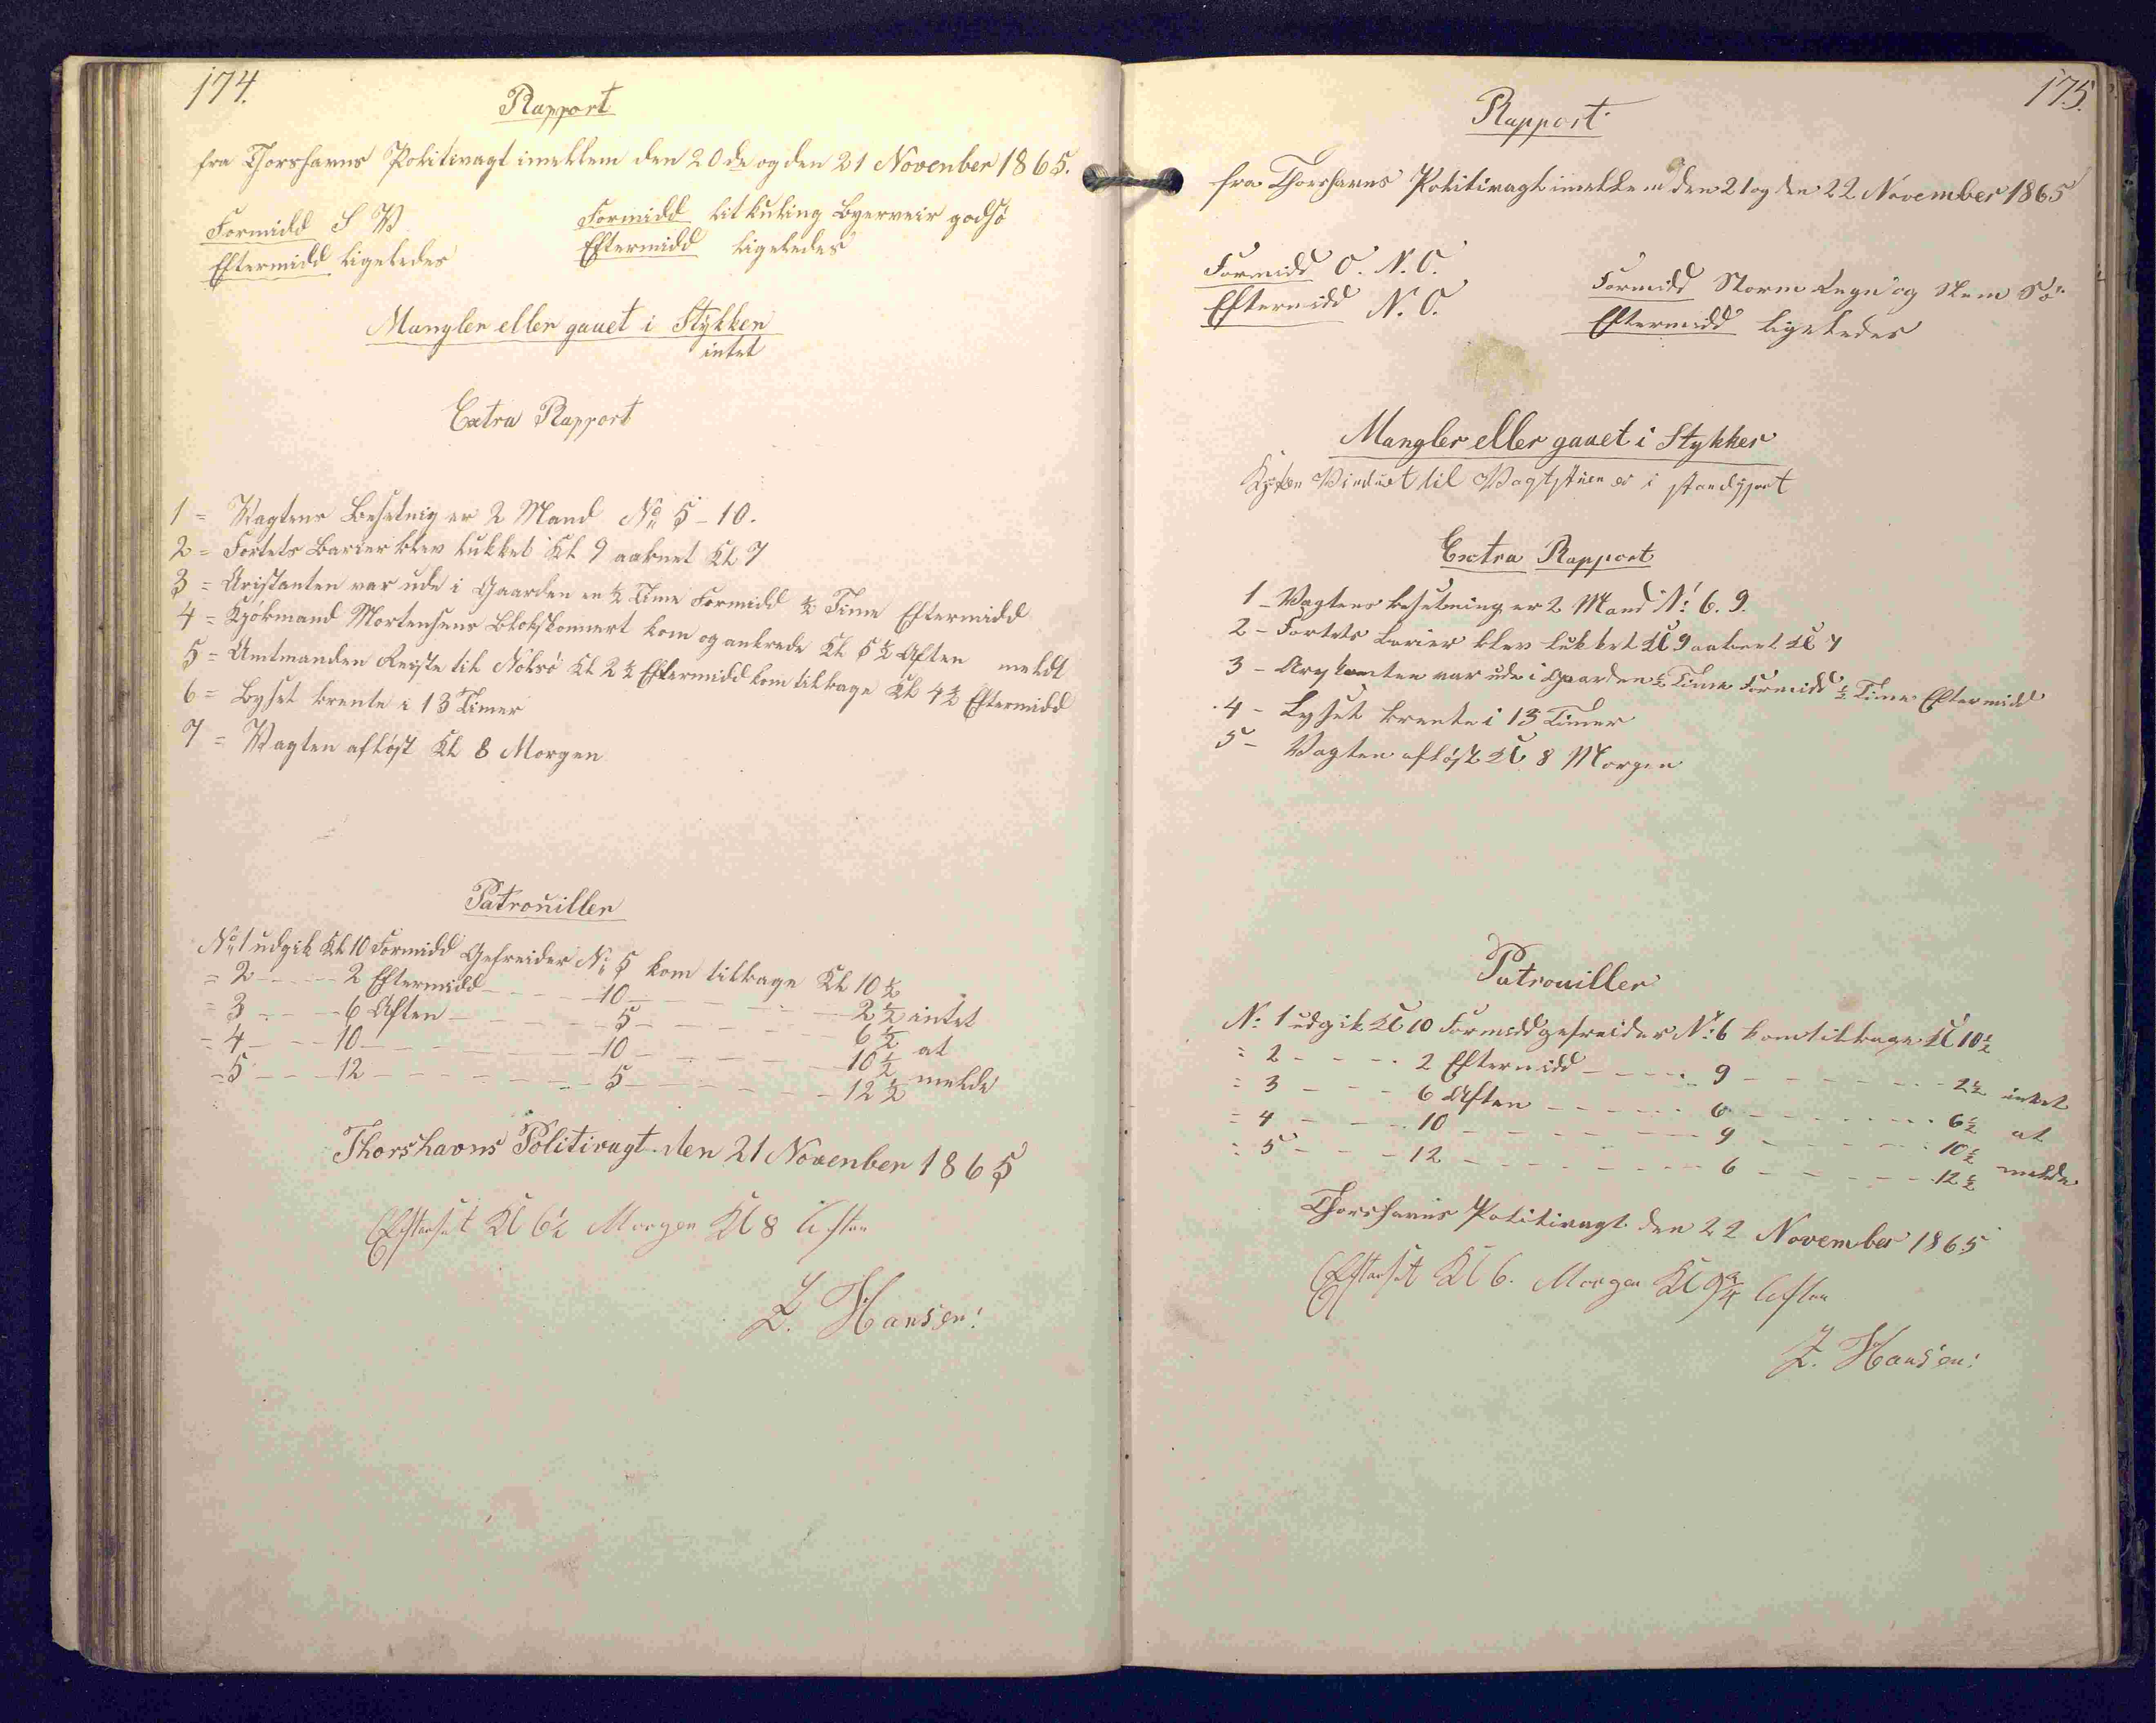 174.
Rapport
fra Thorshavns Politivagt imellem den 20de og den 21 November 1865.
Formidd S V
Eftermidd ligeledes
Formidd lit kuling Byerveir god Sö
Eftermidd ligeledes
Mangler eller gaaet i Stykker
intet
Extra Rapport
1 = Vagtens Besetnig er 2 Mand No 5 - 10.
2 = Fortets Barier blev lukket Kl 9 aabnet Kl 7
3 = Aristanten var ude i Gaarden en ½ Time Formidd ½ Time Eftermidd
4 = Kjökmand Mortensens Blokskonnert kom og ankrede Kl 5½ Aften meldt
5 = Amtmanden Reiste til Nolsö Kl 2½ Eftermidd kom tilbage Kl 4½ Eftermidd
6 = Lyset brente i 13 Timer
7 = Vagten aflöst Kl 8 Morgen
Patrouiller
No 1 udgik Kl 10 Formidd Gefreider No 5 kom tilbage Kl 10½
= 2 - - - - 2 Eftermidd - - - - 10 - - - - 2½ intet
= 3 - - - 6 Aften - - - - 5 - - - - 6½ at
= 4 - - - 10 - - - - 10 - - - - 10½ melde
= 5 - - - 12 - - - - 5 - - - - 12½
Thorshavns Politivagt den 21 November 1865
Efterset Kl 6½ Morgen Kl 8 Aften
Z. Hansen!
175.
Rapport
fra Thorshavns Politivagt imellem den 21 og den 22 November 1865
Formidd O. N. O.
Eftermidd N. O.
Formidd Storm Regn og Slem Sö
Eftermidd ligeledes
Mangler eller gaaet i Stykker
Vinduet til Vagtstuen er i standgjort
Extra Rapport
1 - Vagtens besetning er 2 Mand No 6. 9.
2 - Fortets Barier blev lukket Kl 9 aabnet Kl 7
3 - Arystanten var ude i Gaarden ½ Time Formidd ½ Time Eftermidd
4 - Lyset brente i 13 Timer
5 - Vagten aflöst Kl 8 Morgen
Patrouiller
No 1 udgik Kl 10 Formidd gefreider No 6 kom tilbage Kl 10½
= 2 - - - - 2 Eftermidd - - - - 9 - - - - 2½ intet
= 3 - - - 6 Aften - - - - 6 - - - - 6½ at
= 4 - - - 10 - - - - 9 - - - - 10½ melde
= 5 - - - 12 - - - - 6 - - - - 12½
Thorshavns Politivagt den 22 November 1865
Efterset Kl 6. Morgen Kl 9¾ Aften
Z. Hansen!